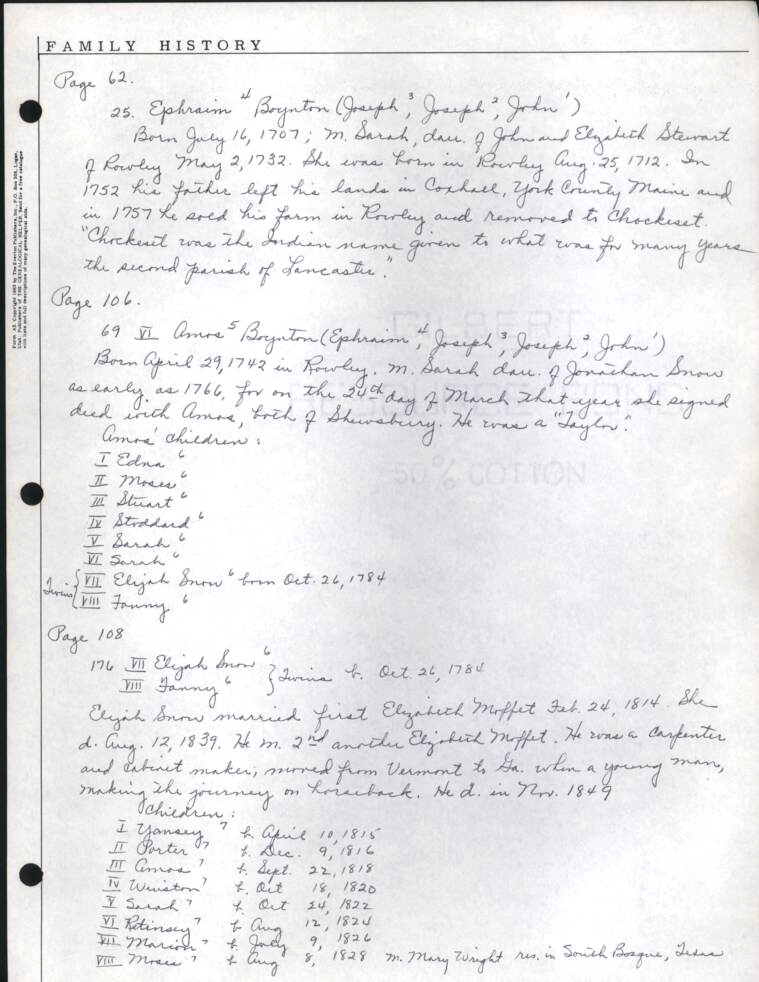 FAMILY HISTORY
Page 62.
25. Ephraim 4 Boynton (Joseph 3, Joseph 2, John 1)
Born July 16, 1707; m. Sarah, dau. of John and Elizabeth Stewart
of Rowley May 2, 1732. She was born in Rowley Aug. 25, 1712. In
1752 his father left his lands in Coxhall, York County Maine and
in 1757 he sold his farm in Rowley and removed to Chockeset.
"Chockeset was the Indian name given to what was for many years
the second parish of Lancaster."
Page 106.
69 VI Amos 5 Boynton (Ephraim 4, Joseph 3, Joseph 2, John 1)
Born April 29, 1742 in Rowley. m. Sarah dau. of Jonathan Snow
as early as 1766, for on the 24th day of March that year she signed
deed with Amos, both of Shewsbury. He was a "Taylor".
Amos' children:
I Edna 6
II Moses 6
III Stuart 6
IV Stoddard 6
V Sarah 6
VI Sarah 6
Twins { VII Elijah Snow 6 born Oct. 26, 1784
VIII Fanny 6
Page 108
176 VII Elijah Snow 6
VIII Fanny 6 } Twins b. Oct 26, 1784
Elijah Snow married first Elizabeth Moffet Feb. 24, 1814. She
d. Aug. 12, 1839. He m. 2nd another Elizabeth Moffet. He was a carpenter
and cabinet maker; moved from Vermont to Ga. when a young man,
making the journey on horseback. He d. in Nov. 1849
Children:
I Yansey 7 b. April 10, 1815
II Porter 7 b. Dec. 9, 1816
III Amos 7 b. Sept. 22, 1818
IV Winston 7 b. Oct 18, 1820
V Sarah 7 b. Oct 24, 1822
VI Retinsey 7 b Aug 12, 1824
VII Marion 7 b. July 9, 1826
VIII Moses 7 b Aug 8, 1828 m. Mary Wright res. in South Bosque, Texas